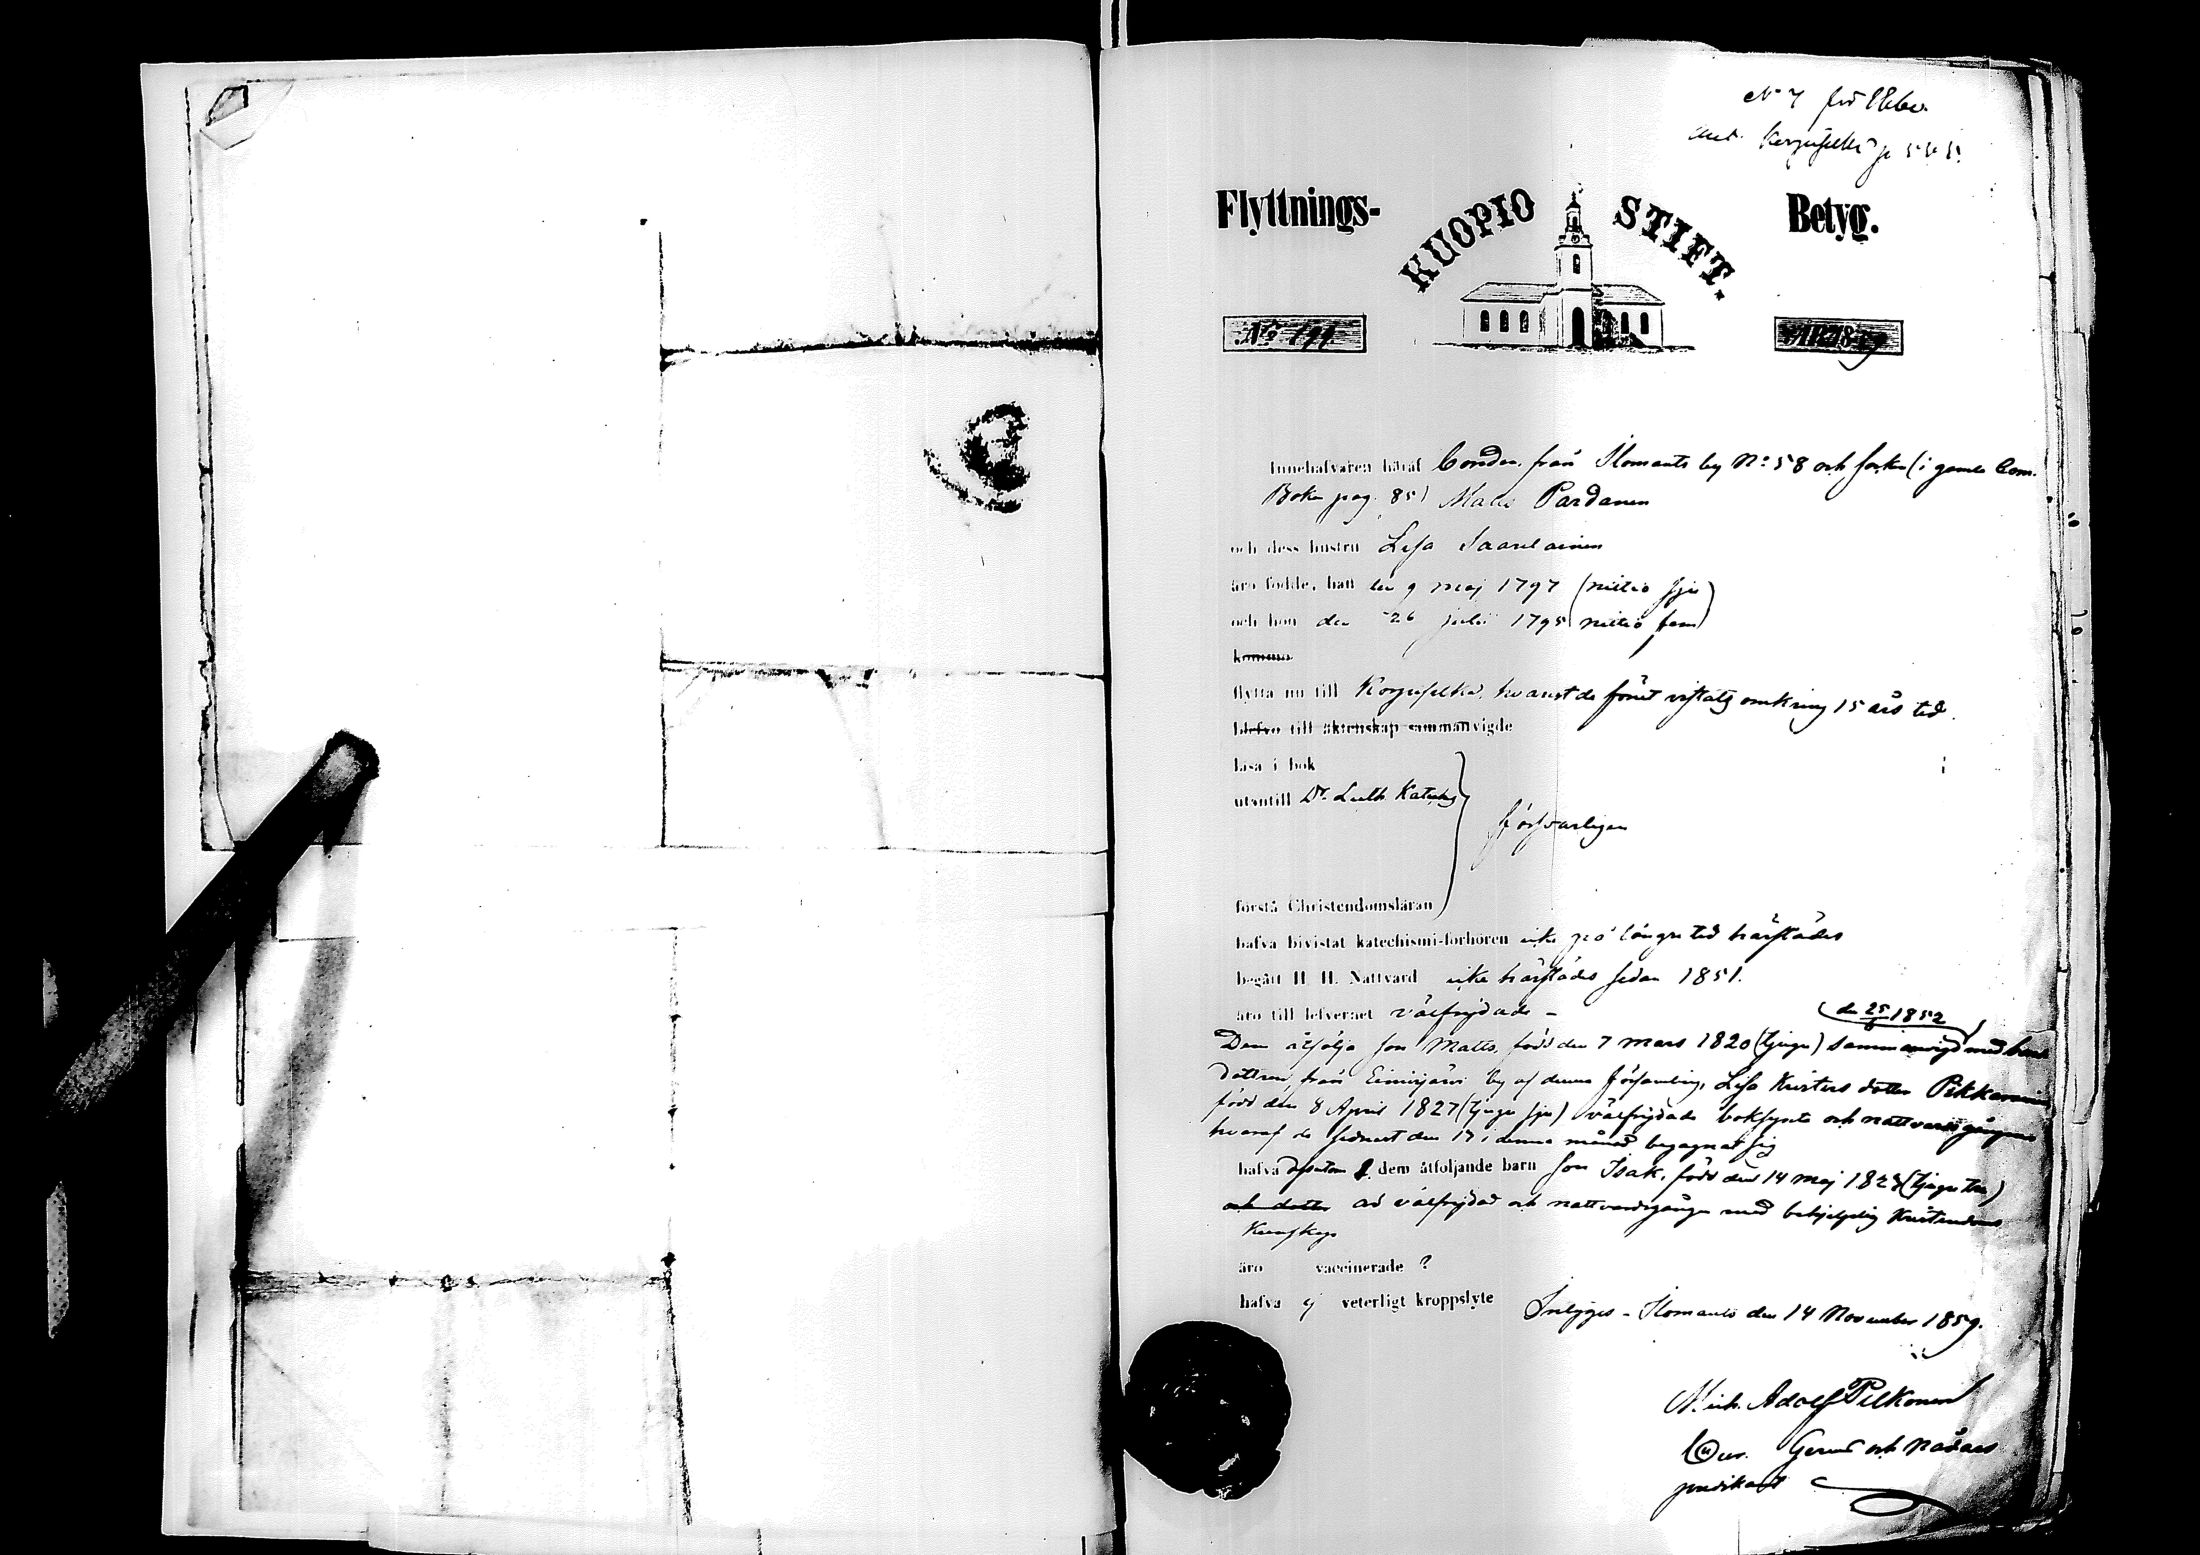 N 7
Flyttnings-
KUOPIO STIFT.
Betyg.
No 191
Innehafvaren häraf Bonden från Ilomants by No 58 och (i gamla Com.
Boken pag. 85) Matts Pardanen
och dess hustru Lisa Saarelainen
äro födde, han den 9 maj 1797 (nittio sju)
och hon den 26 julii 1795 (nittio fem)
komma
flytta nu till Korpiselkä, hvarest de förut vistats omkring 15 års tid.
blefvo till äktenskap sammanvigde
läsa i bok
utantill Dr. Luth. Kateches
försvarligen
förstå Christendomsläran
hafva bivistat katechismi-förhören icke på längre tid härstädes
begått H. H. Nattvard icke härstädes sedan 1851.
äro till lefvernet välfrejdade -
d. 25/6 1852
Dem åtfölja son Matts, född den 7 mars 1820 (tjugu) sammanvigd med
dottren från Eimisjärvi by af denna församling, Lisa Kristers dotter Pikkarainen
född den 8 April 1827 (tjugu sju) välfrejdade boksynte och nattvardsgångne
hvaraf de sednast den 17 i denna månad begagnat sig
hafva dessutom dem åtföljande barn son Isak, född den 14 maj 1823 (tjugu tre)
och dotter välfrejdad och nattvardsgången med behjelplig Kristendoms
Kunskap
äro vaccinerade ?
hafva ej veterligt kroppslyte
Intygas - Ilomants den 14 November 1859.
Mich. Adolf Pelkonen
och nådårs
predikant